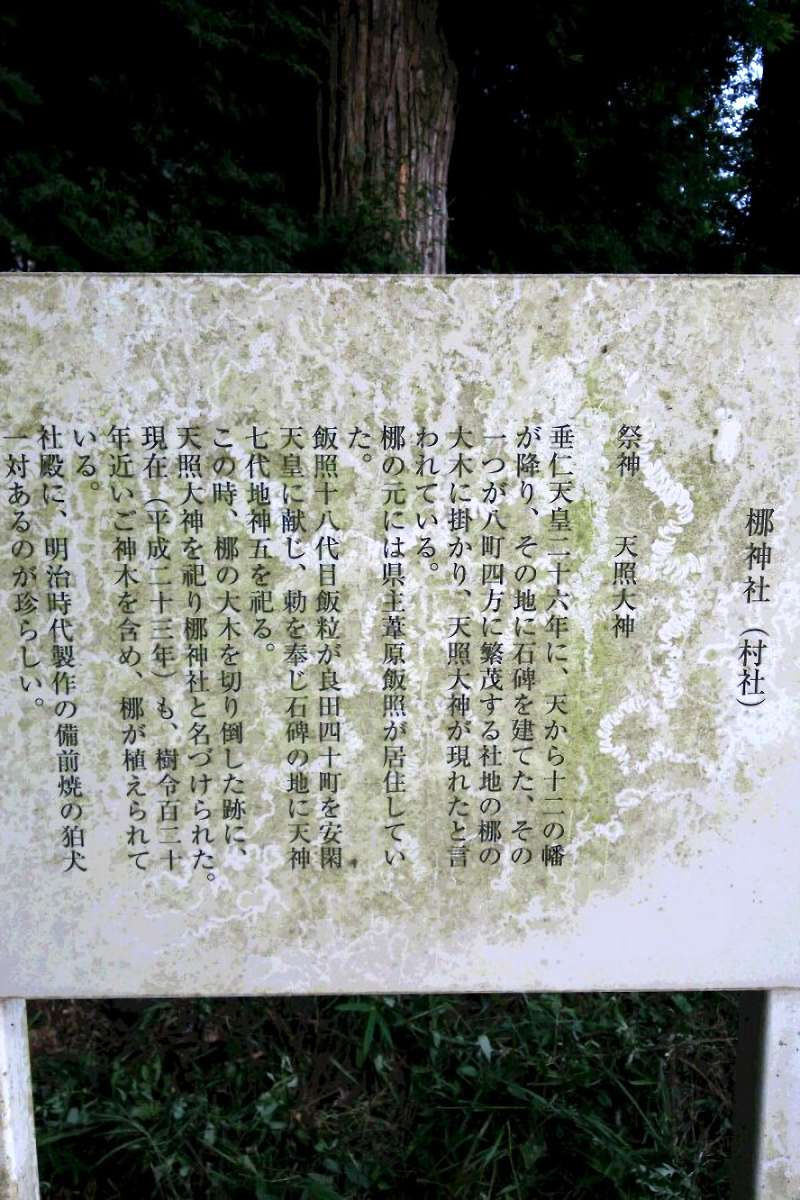 梛神社（村社）
祭神　天照大神
垂仁天皇二十六年に、天から十二の幡
が降り、その地に石碑を建てた、その
一つが八町四方に繁茂する社地の梛の
大木に掛かり、天照大神が現れたと言
われている。
梛の元には県主葦原飯照が居住してい
た。
飯照十八代目飯粒が良田四十町を安閑
天皇に献じ、勅を奉じ石碑の地に天神
七代地神五を祀る。
この時、梛の大木を切り倒した跡に、
天照大神を祀り梛神社と名づけられた。
現在（平成二十三年）も、樹令百二十
年近いご神木を含め、梛が植えられて
いる。
社殿に、明治時代製作の備前焼の狛犬
一対あるのが珍らしい。